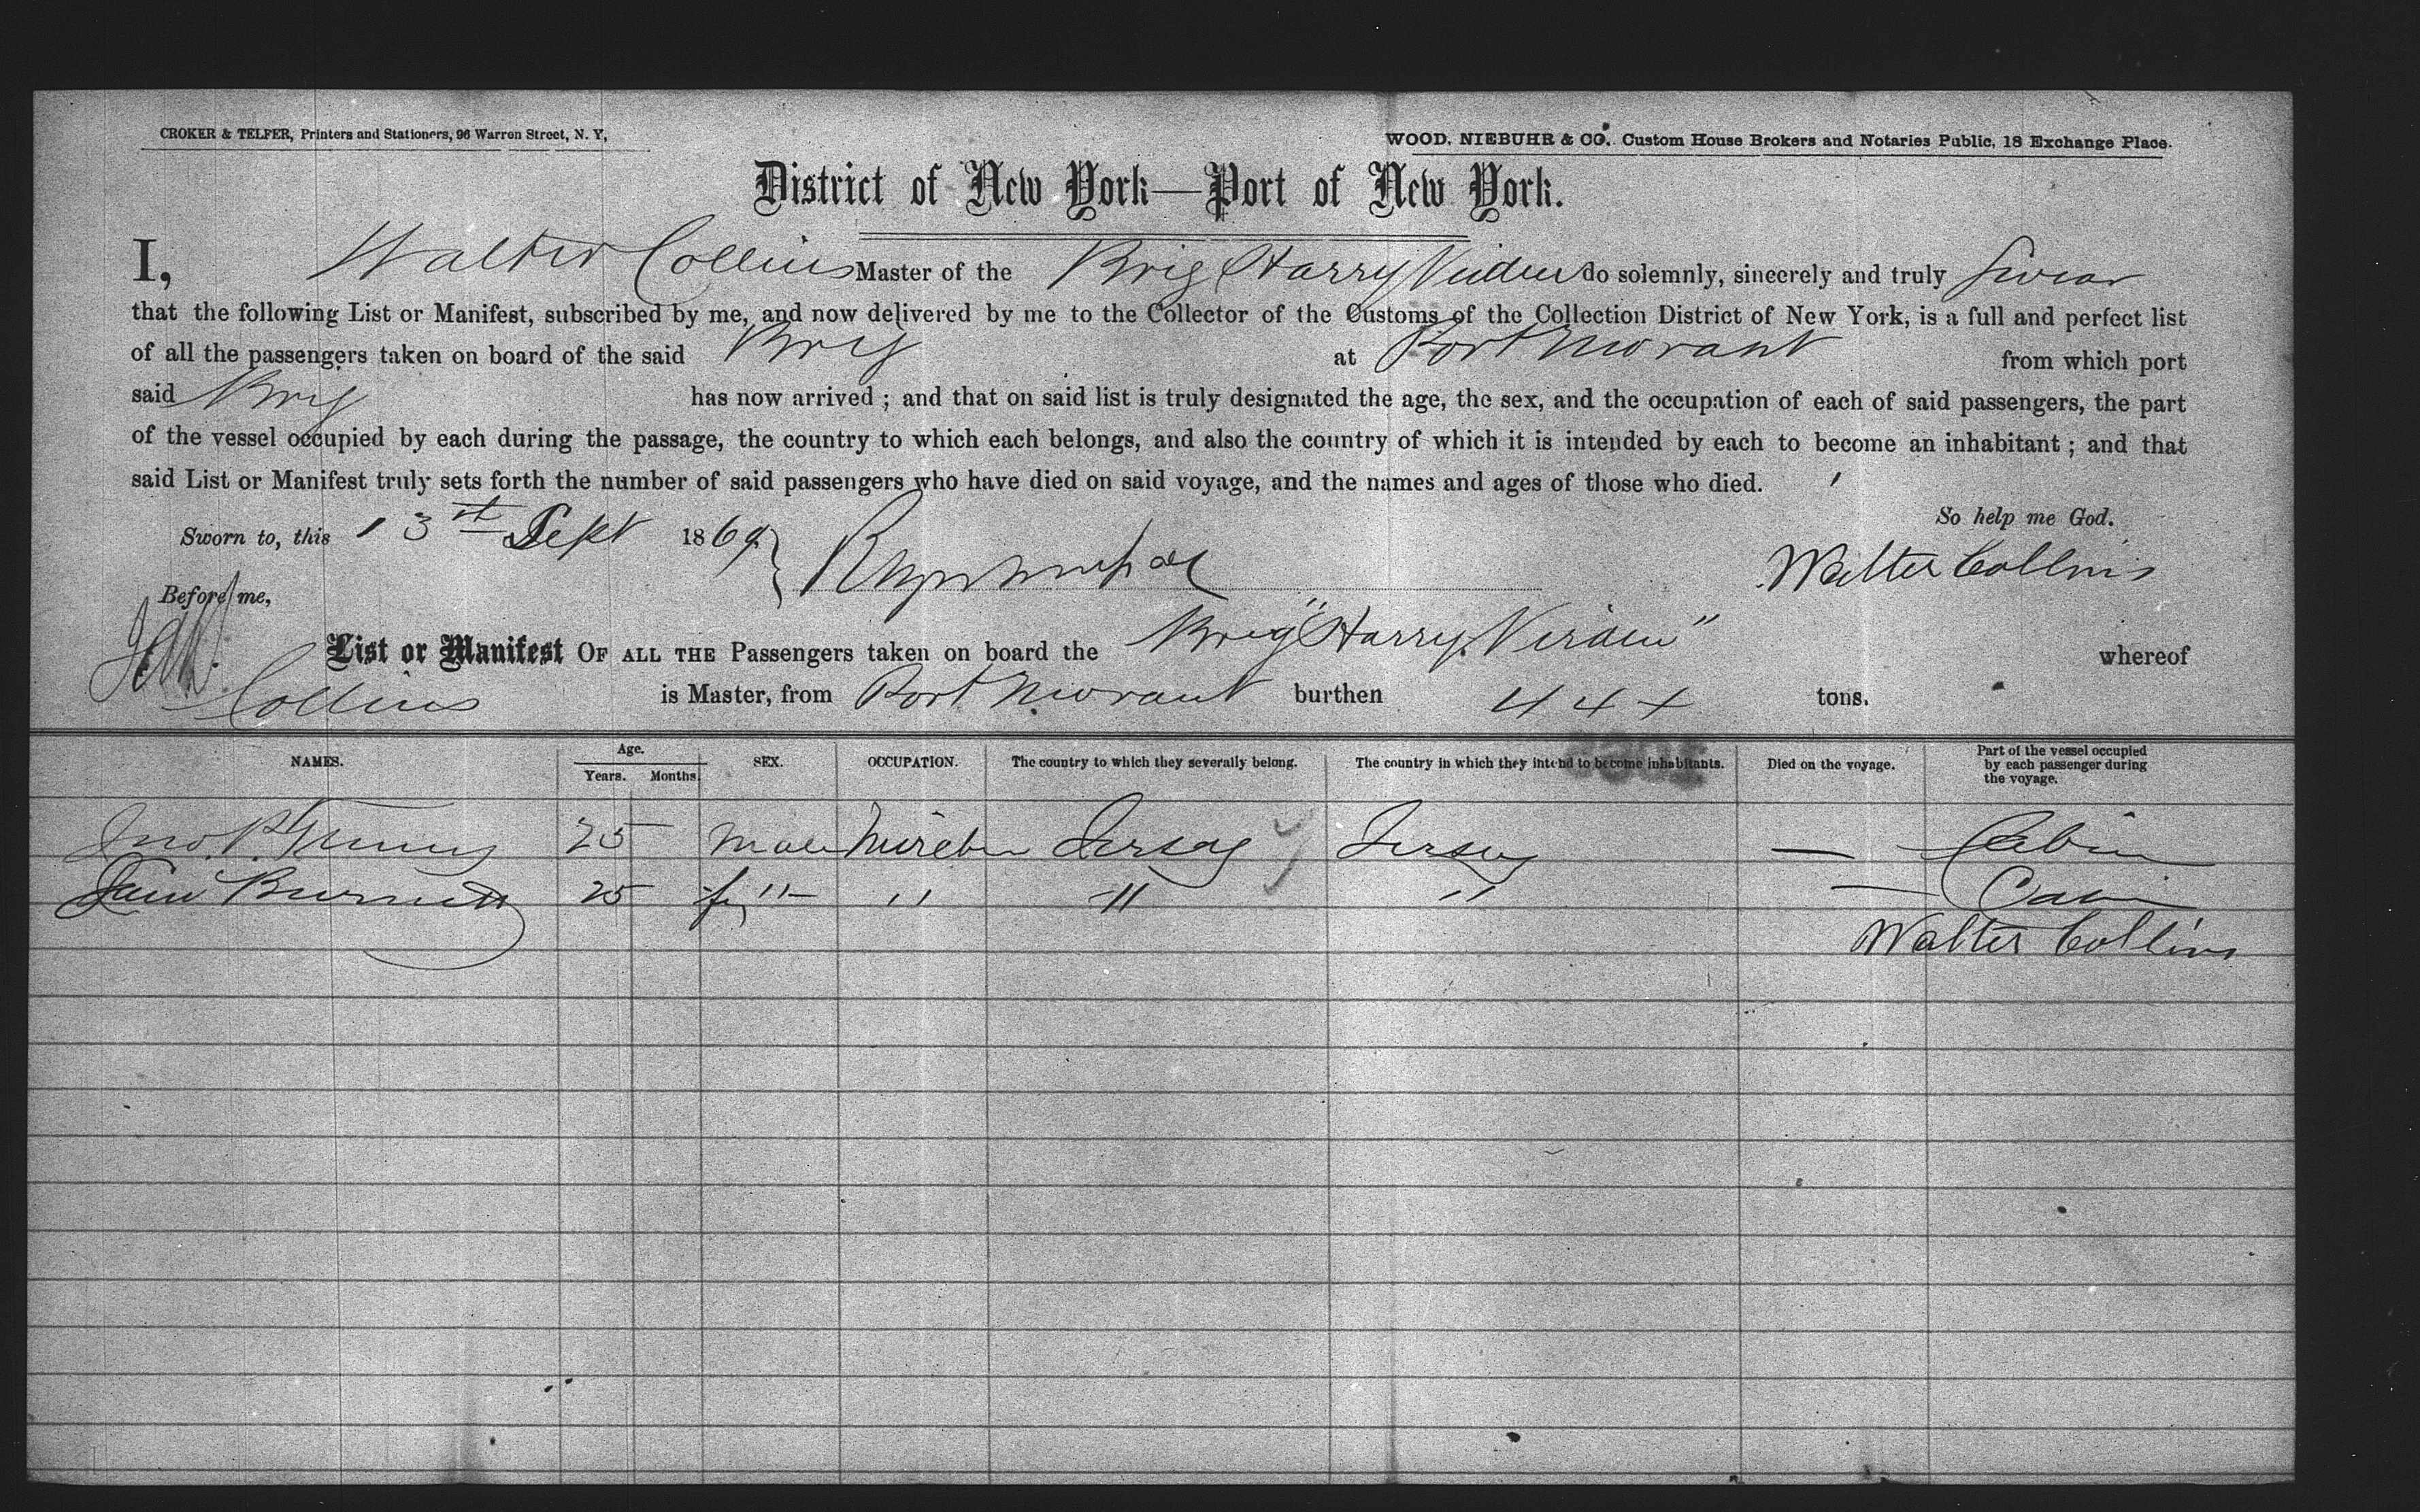 CROKER & TELFER, Printers and Stationers, 96 Warren Street, N. Y,
WOOD, NIEBUHR & CO. Custom House Brokers and Notaries Public, 18 Exchange Place.
District of New York—Port of New York.
I, Walter Collins Master of the Brig Harry Virden do solemnly, sincerely and truly Swear
that the following List or Manifest, subscribed by me, and now delivered by me to the Collector of the Customs of the Collection District of New York, is a full and perfect list
of all the passengers taken on board of the said Brig at Port Morant from which port
said Brig has now arrived ; and that on said list is truly designated the age, the sex, and the occupation of each of said passengers, the part
of the vessel occupied by each during the passage, the country to which each belongs, and also the country of which it is intended by each to become an inhabitant ; and that
said List or Manifest truly sets forth the number of said passengers who have died on said voyage, and the names and ages of those who died.
So help me God.
Sworn to, this 13th Sept 1869
Walter Collins
Before me,
List or Manifest OF ALL THE Passengers taken on board the Brig "Harry Virden" whereof
Collins is Master, from Port Morant burthen 444 tons.
NAMES. Age. Years. Months. SEX. OCCUPATION. The country to which they severally belong. The country in which they intend to become inhabitants. Died on the voyage. Part of the vessel occupied by each passenger during the voyage.
Jno. P. 25 Male Jersey Jersey — Cabin
Burnett 25 " " " — Cabin
Walter Collins